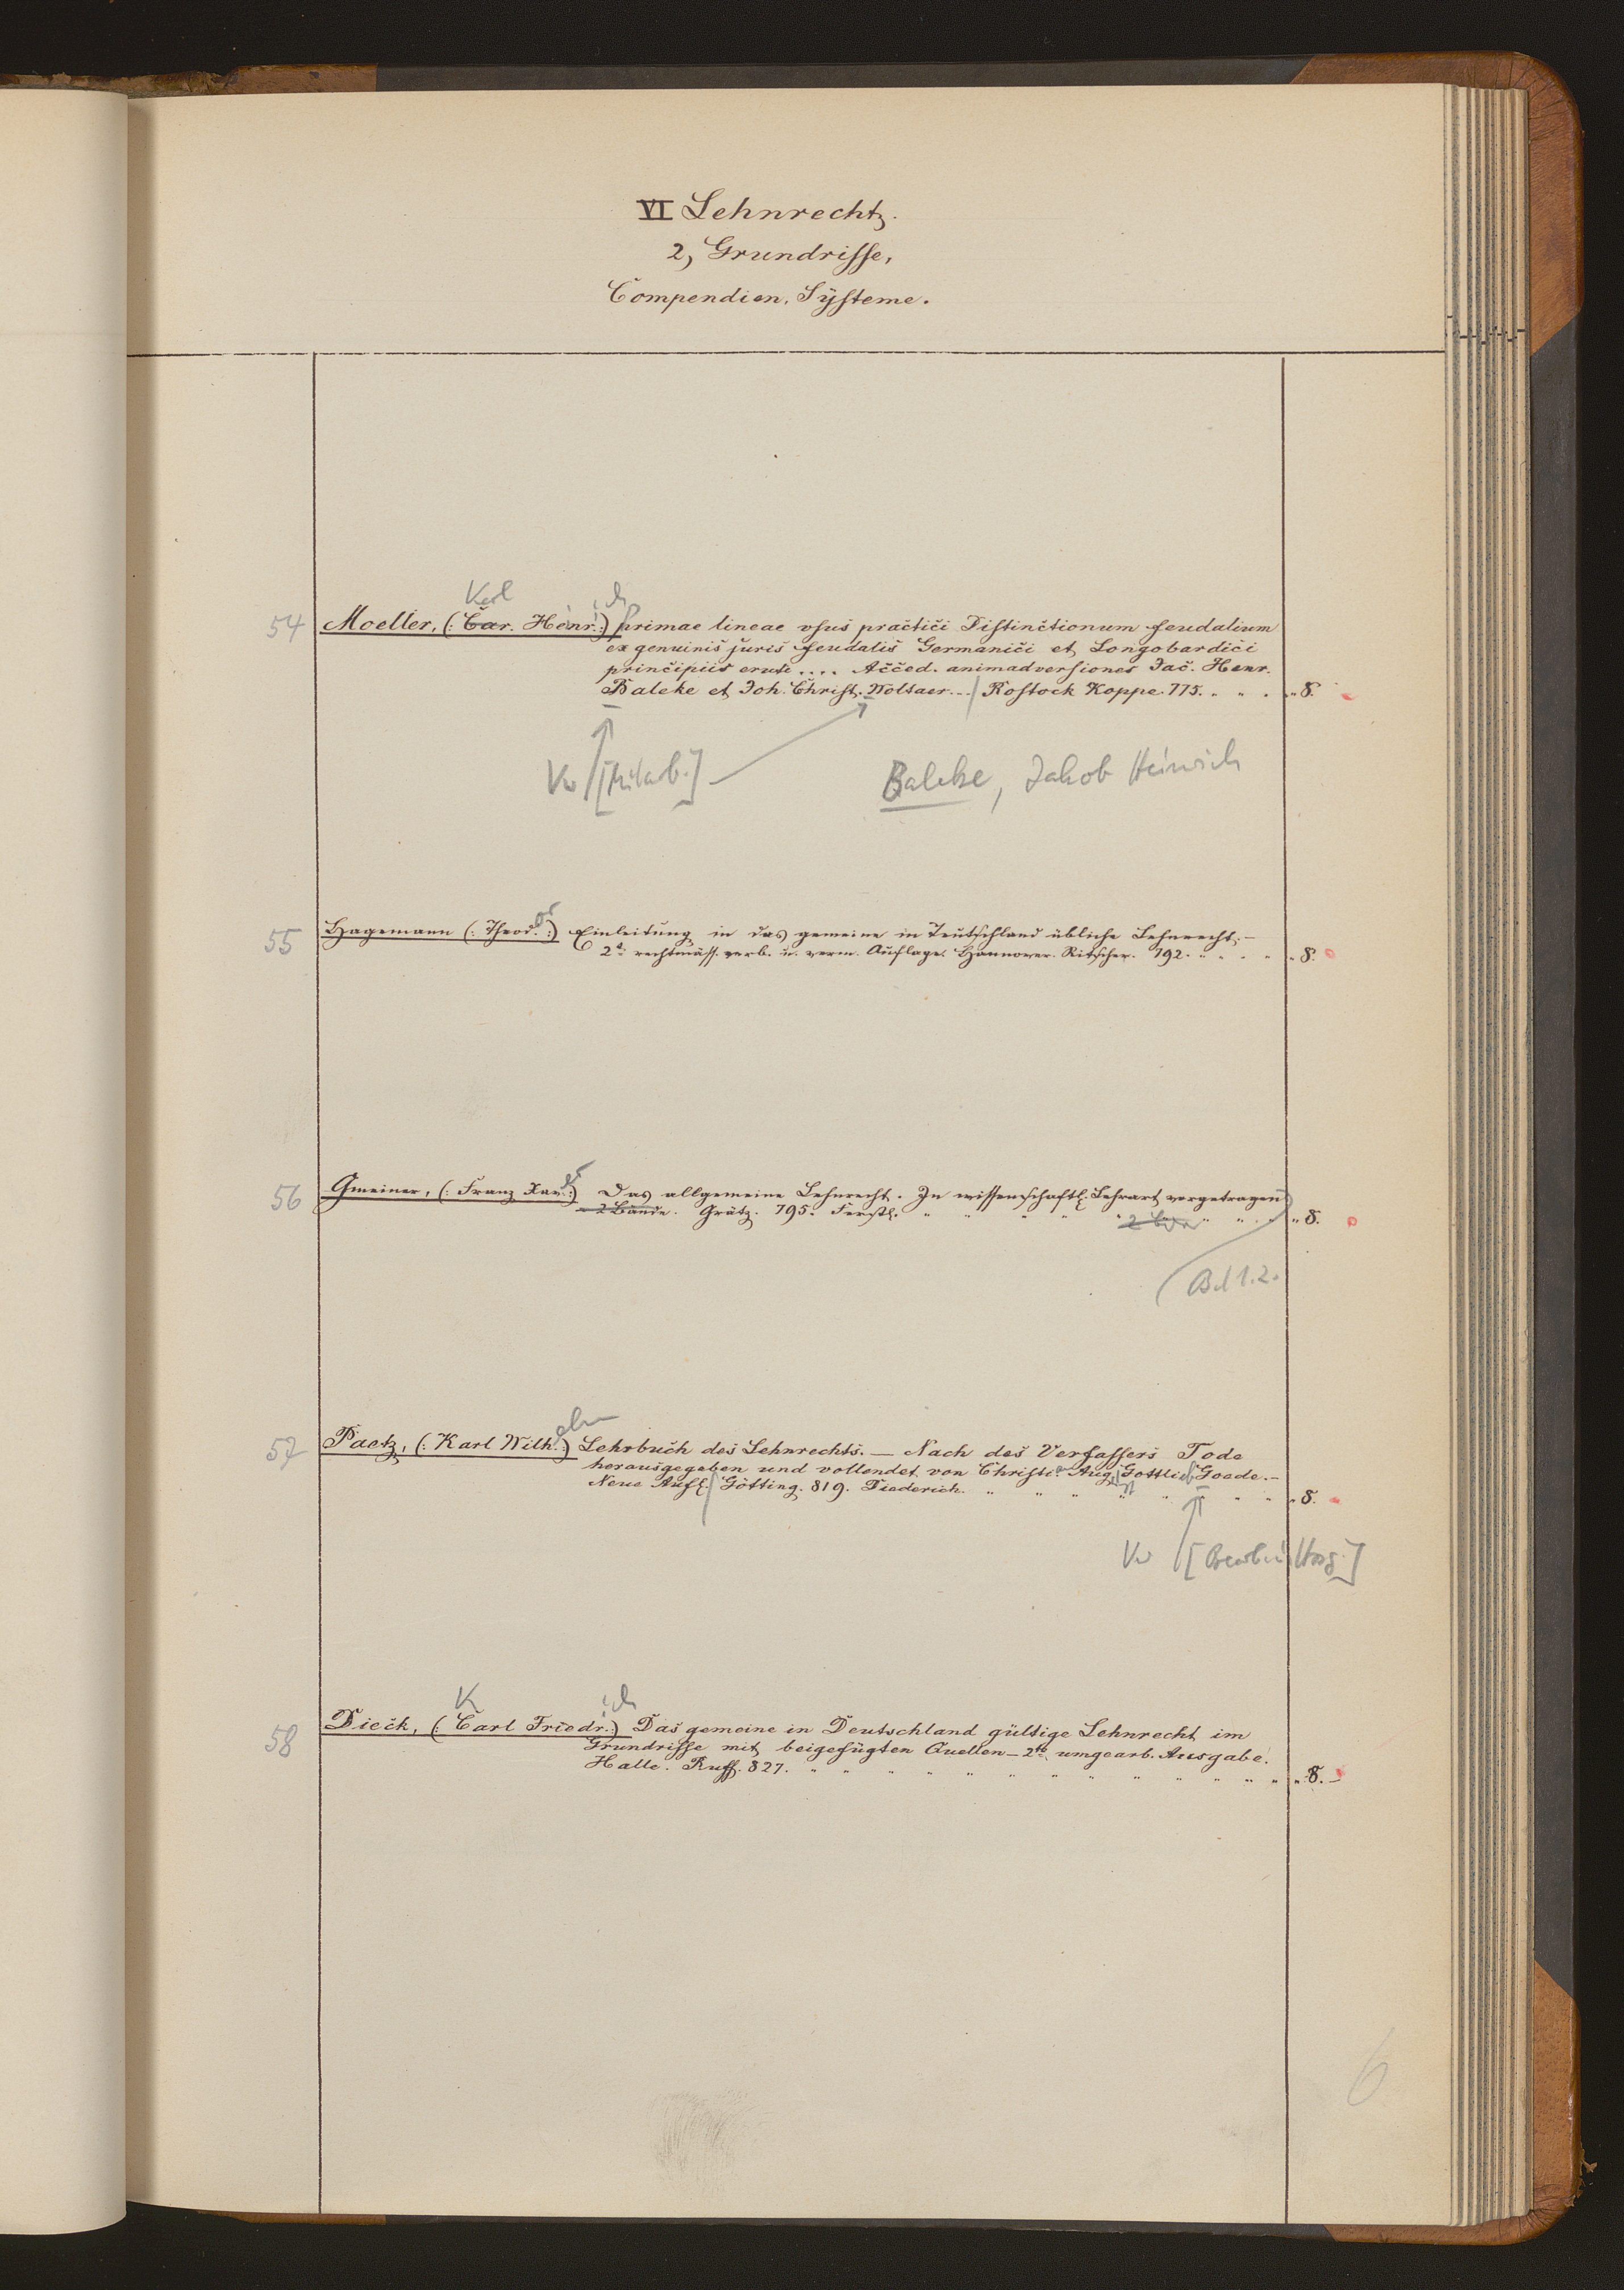 VI Lehnrecht.
2, Grundrisse,
Compendien, Systeme.
Karl ich
54 Moeller, (: Car. Henr. :) primae lineae vsus practici Distinctionum feudalium
ex genuinis juris feudalis Germanici et Longobardici
principiis eruti .... Acced. animadversiones Jac. Henr.
Balcke et Joh. Christ. Woltaer... / Rostock Koppe. 775. " " " " 8.
Vw / [Mitarb.] Balcke, Jakob Heinrich
or
55 Hagemann (: Theod. :) Einleitung in das gemeine in Teutschland übliche Lehnrecht. –
2t: rechtmäss. verb. u. verm. Auflage. Hannover. Ritscher. 792. " " " " " 8.
er
56 Gmeiner, (: Franz Xav. :) Das allgemeine Lehnrecht. In wissenschaftl. Lehrart vorgetragen
2 Bände. Grätz. 795. Ferstl. " " " " " " " " 8.
Bd 1.2.
elm
57 Paetz, (: Karl Wilh. :) Lehrbuch des Lehnrechts. — Nach des Verfassers Tode
herausgegeben und vollendet von Christi. Aug. Gottlieb Goede. –
Neue Aufl. / Götting. 819. Diederich. " " " " " " " " " 8.
Vw / [Bearb. u. Hrsg.]
K ich
58 Dieck, (: Carl Friedr. :) Das gemeine in Deutschland gültige Lehnrecht im
Grundrisse mit beigefügten Quellen – 2te umgearb. Ausgabe.
Halle. Ruff. 827. " " " " " " " " " " " " " 8. –
6